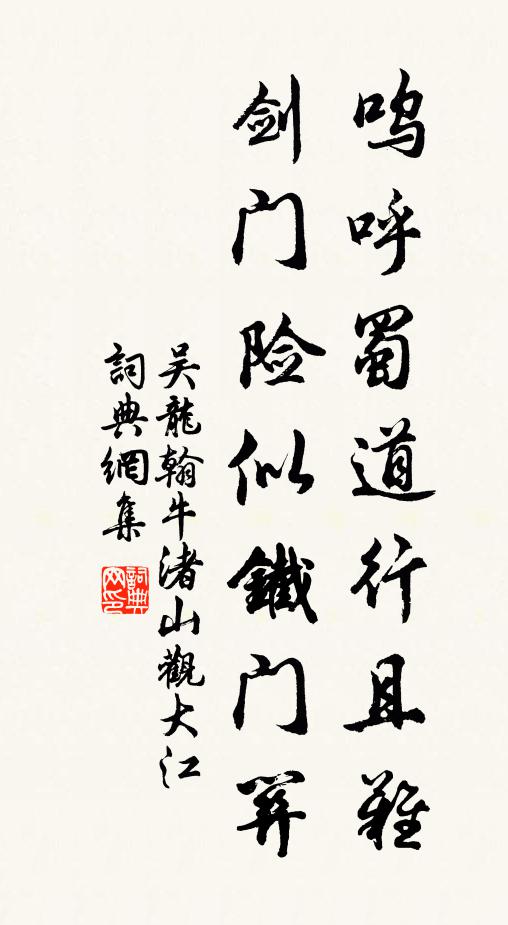 呜呼蜀道行且难
剑门险似鐵门关
吴龍翰牛渚山觀大江
詞典網集
詞典网印